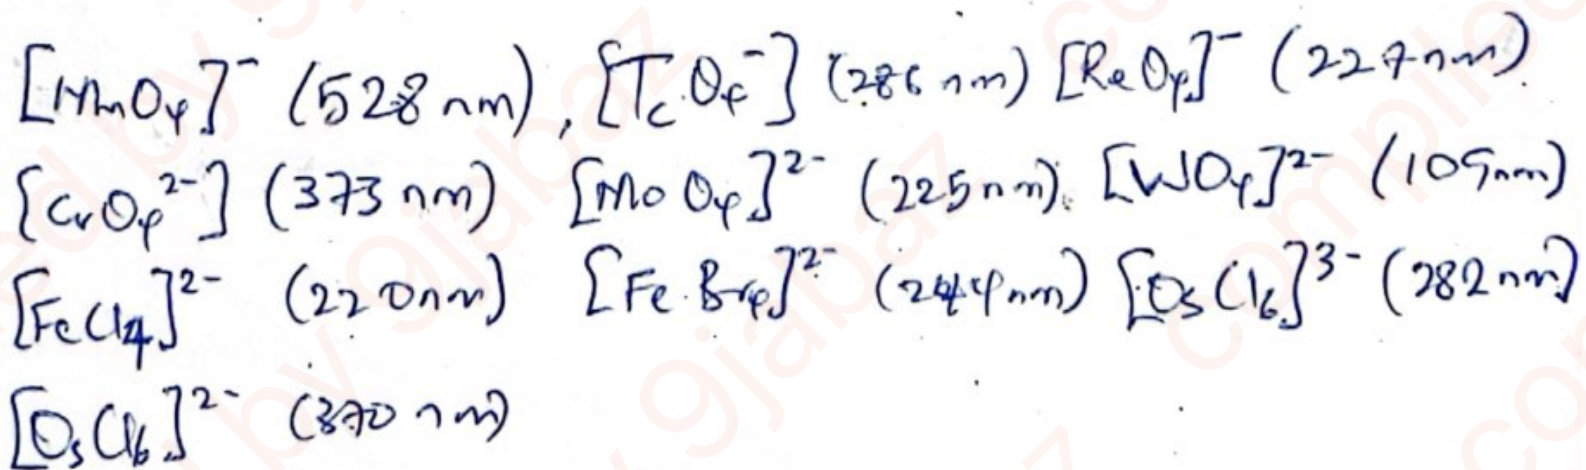 [MnO₄]⁻ (528 nm), [TcO₄⁻] (286 nm) [ReO₄]⁻ (227nm).
[CrO₄²⁻] (373 nm) [MoO₄]²⁻ (225nm). [WO₄]²⁻ (109nm)
[FeCl₄]²⁻ (220nm) [FeBr₄]²⁻ (244nm) [OsCl₆]³⁻ (282nm)
[OsCl₆]²⁻ (370 nm)